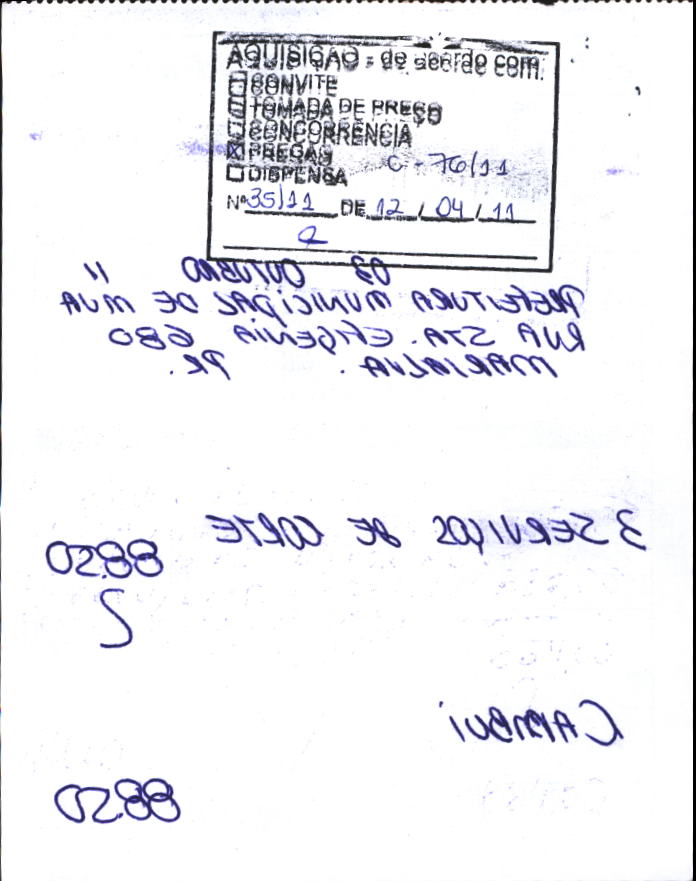 AQUISIÇAO - de acordo com:
☐ CONVITE
☐ TOMADA DE PREÇO
☐ CONCORRÊNCIA
☒ PREGAO C - 76/11
☐ DISPENSA
Nº 35/11 DE 12 / 04 / 11
03 OUTUBRO 11
PREFEITURA MUNICIPAL DE MVA
RUA STA. EFIGENIA 680
MARIALVA. PR.
3 SERVIÇOS DE CORTE
88,20
CAMBUI
88,20